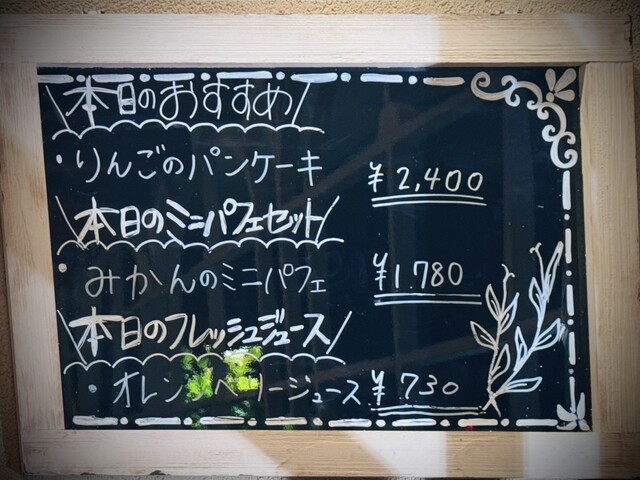 本日のおすすめ
・りんごのパンケーキ
¥2,400
本日のミニパフェセット
・みかんのミニパフェ
¥1,780
本日のフレッシュジュース
・オレン ベリージュース ¥730